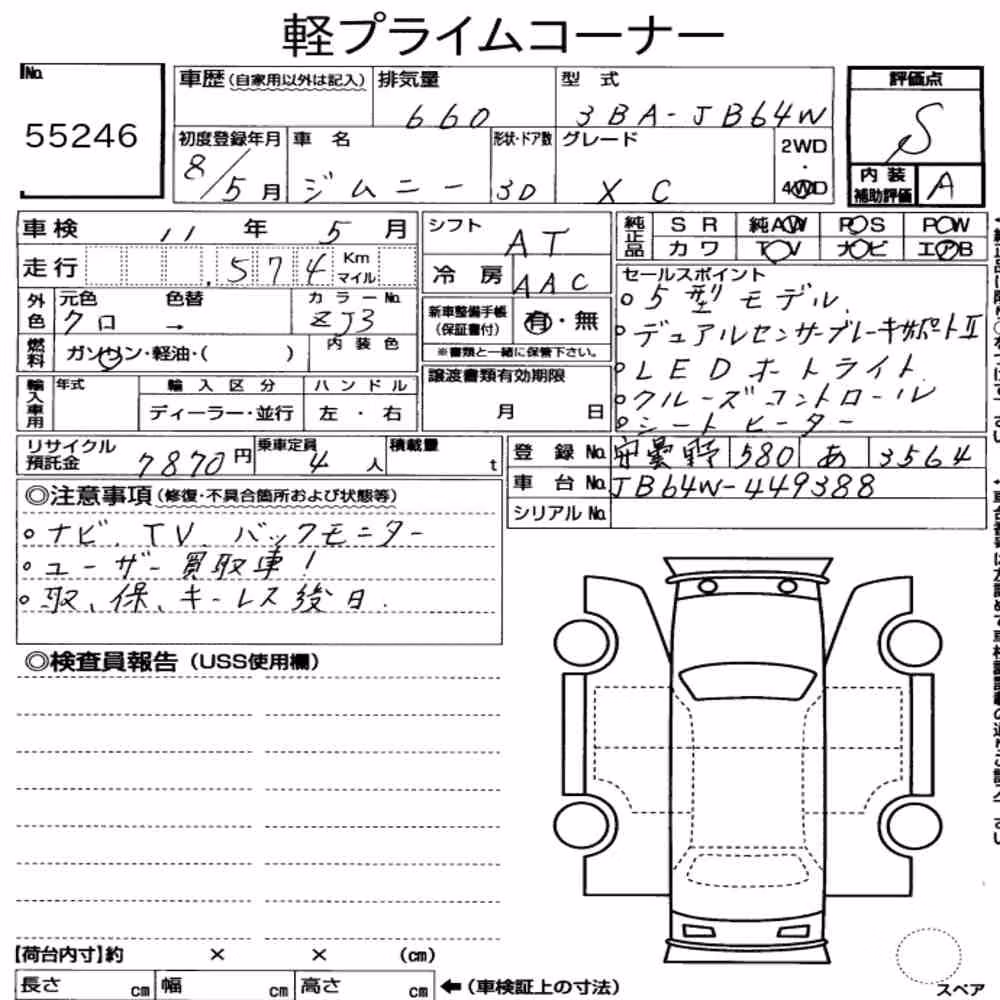 軽プライムコーナー
No.
55246
車歴(自家用以外は記入) 排気量 660
型式 3BA-JB64W
初度登録年月 8/5月
車名 ジムニー
形状・ドア数 3D
グレード XC
2WD・4WD
評価点 S
内装補助評価 A
車検 11年 5月
走行 574 Km マイル
外色 元色 クロ 色替 → カラーNo. ZJ3
燃料 ガソリン・軽油・( ) 内装色
輸入車用 年式 輸入区分 ディーラー・並行 ハンドル 左・右
シフト AT
冷房 AAC
新車整備手帳(保証書付) 有・無
※書類と一緒に保管下さい。
譲渡書類有効期限
月 日
純正品 SR 純AW PS PW
カワ TV ナビ エアB
セールスポイント
○5型モデル
○デュアルセンサーブレーキサポートⅡ
○LEDホートライト
○クルーズコントロール
○シートヒーター
リサイクル預託金 7870円
乗車定員 4人
積載量 t
登録No. 安曇野 580 あ 3564
車台No. JB64W-449388
シリアルNo.
◎注意事項(修復・不具合箇所および状態等)
○ナビ、TV、バックモニター
○ユーザー買取車!
○取、保、キーレス後日.
◎検査員報告(USS使用欄)
【荷台内寸】約 × × (cm)
長さ cm 幅 cm 高さ cm ←(車検証上の寸法)
スペア